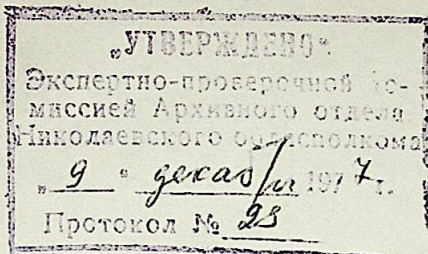 „УТВЕРЖДЕНО“
Экспертно-проверочной ко-
миссией Архивного отдела
Николаевского облисполкома
„ 9 “ декабря 1977 г.
Протокол № 23